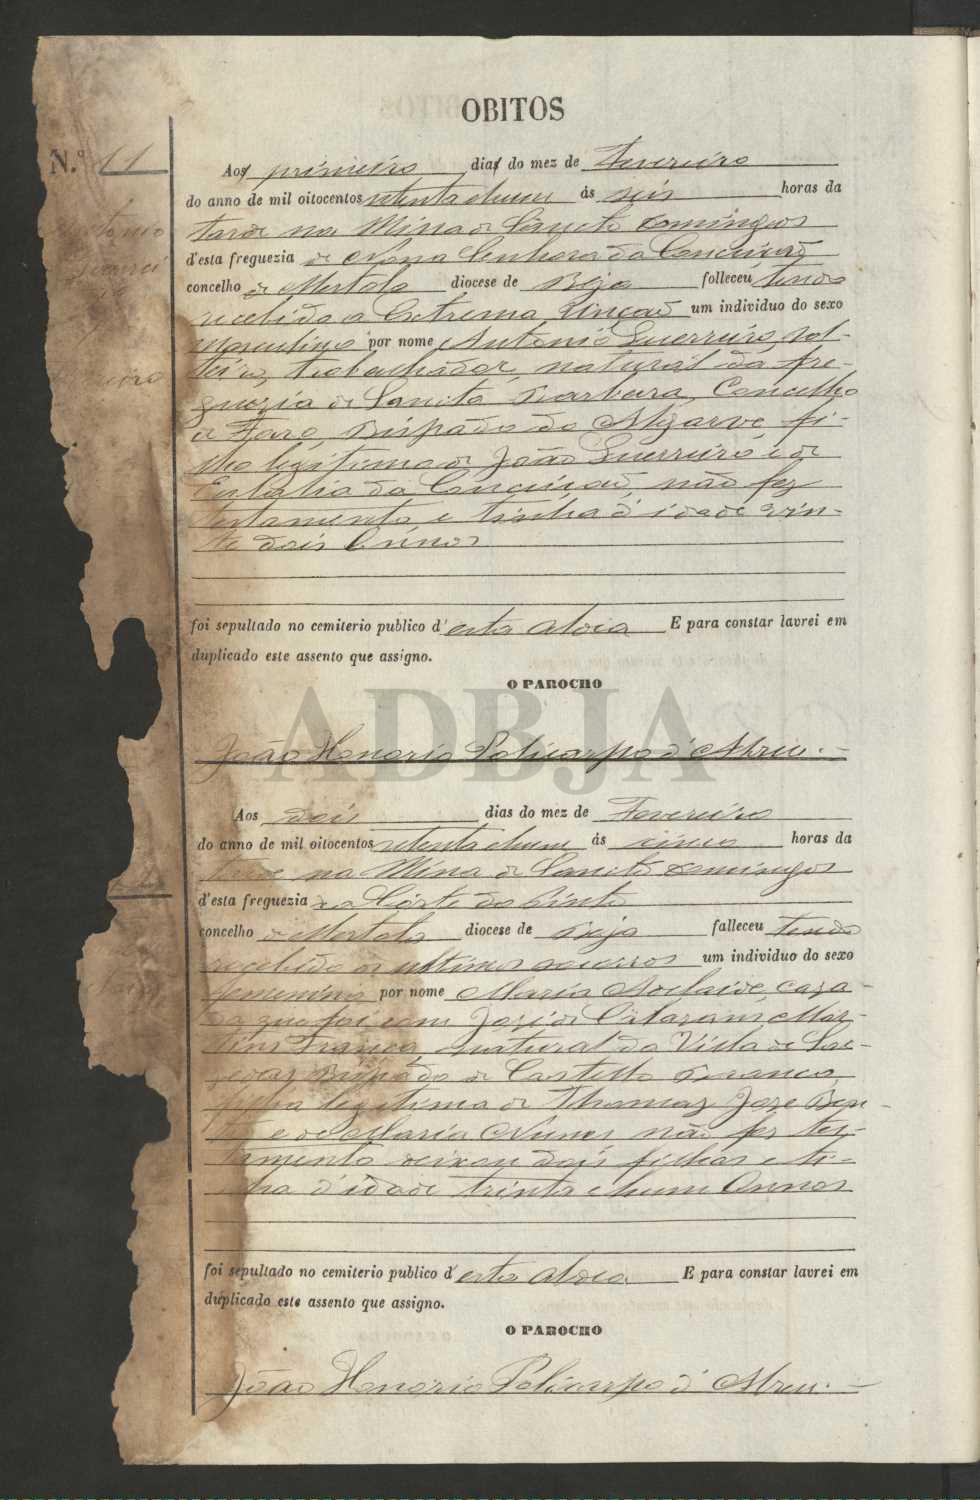 OBITOS
N.º 11
Aos primeiro dias do mez de Fevereiro
do anno de mil oitocentos setenta e hum ás seis horas da
tarde na Mina de Sancto Domingos
d'esta freguezia de Nossa Senhora da Conceição
concelho de Mertola diocese de Beja folleceu tendo
recebido a Extrema Unçaõ um individuo do sexo
masculino por nome Antonio Guerreiro, sol-
teiro, trabalhador, natural da fre-
guezia de Sancta Barbara, Concelho
de Faro, Bispado do Algarve, fi-
lho legitimo de João Guerreiro e de
Eulalia da Conceicaõ, não fez
testamento, e tinha d'idade vin-
te dois Annos
foi sepultado no cemiterio publico d'esta aldea E para constar lavrei em
duplicado este assento que assigno.
O PAROCHO
ADBJA
João Honorio Policarpo d'Abreu.
Aos dois dias do mez de Fevereiro
do anno de mil oitocentos setenta e hum ás cinco horas da
tarde na Mina de Sancto Domingos
d'esta freguezia da Côrte do Pinto
concelho de Mertola diocese de Beja falleceu tendo
recebido os ultimos socorros um individuo do sexo
femenino por nome Maria Adelaide, caza-
da que foi com José de Mar-
tins Franca, natural da Villa de
Bispado de Castello Branco,
filha legitima de Thomaz Joze Ben-
to e de Maria Nunes não fez tes-
tamento deixou dois filhos e ti-
nha d'idade trinta e hum Annos
foi sepultado no cemiterio publico d'esta aldea E para constar lavrei em
duplicado este assento que assigno.
O PAROCHO
João Honorio Policarpo d'Abreu.